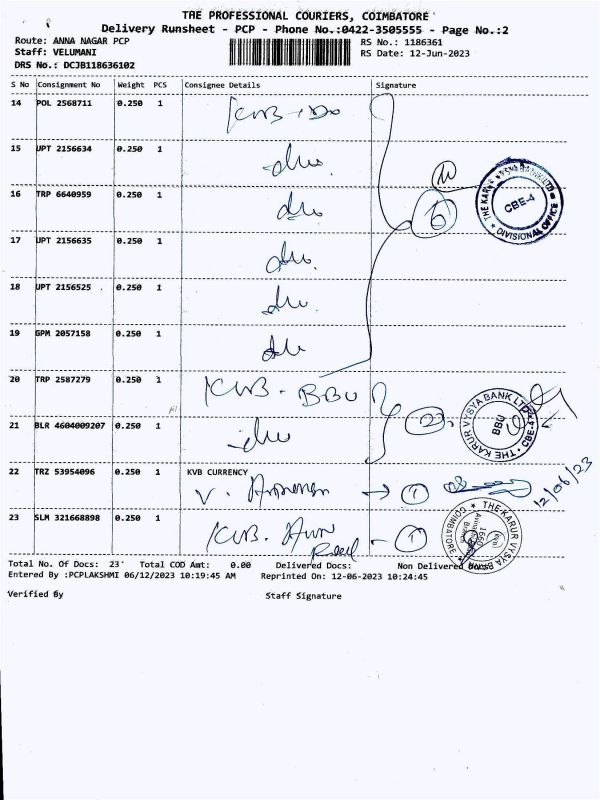 THE PROFESSIONAL COURIERS, COIMBATORE
Delivery Runsheet - PCP - Phone No.:0422-3505555 - Page No.:2
Route: ANNA NAGAR PCP
RS No.: 1186361
Staff: VELUMANI
RS Date: 12-Jun-2023
DRS No.: DCJB118636102
S No Consignment No Weight PCS Consignee Details Signature
14 POL 2568711 0.250 1 KVB - DO
15 UPT 2156634 0.250 1 do
16 TRP 6640959 0.250 1 do
THE KARUR VYSYA BANK LTD
CBE-4
DIVISIONAL OFFICE
6
17 UPT 2156635 0.250 1 do
18 UPT 2156525 0.250 1
19 GPM 2057158 0.250 1
20 TRP 2587279 0.250 1 KVB - BBU
THE KARUR VYSYA BANK LTD
BBU
CBE-4
21 BLR 4604009207 0.250 1
22 TRZ 53954096 0.250 1 KVB CURRENCY
V. → 1
12/06/23
23 SLM 321668898 0.250 1 KVB. → 1
THE KARUR VYSYA BANK
COIMBATORE
Total No. Of Docs: 23 Total COD Amt: 0.00 Delivered Docs: Non Delivered Docs:
Entered By :PCPLAKSHMI 06/12/2023 10:19:45 AM Reprinted On: 12-06-2023 10:24:45
Verified By Staff Signature